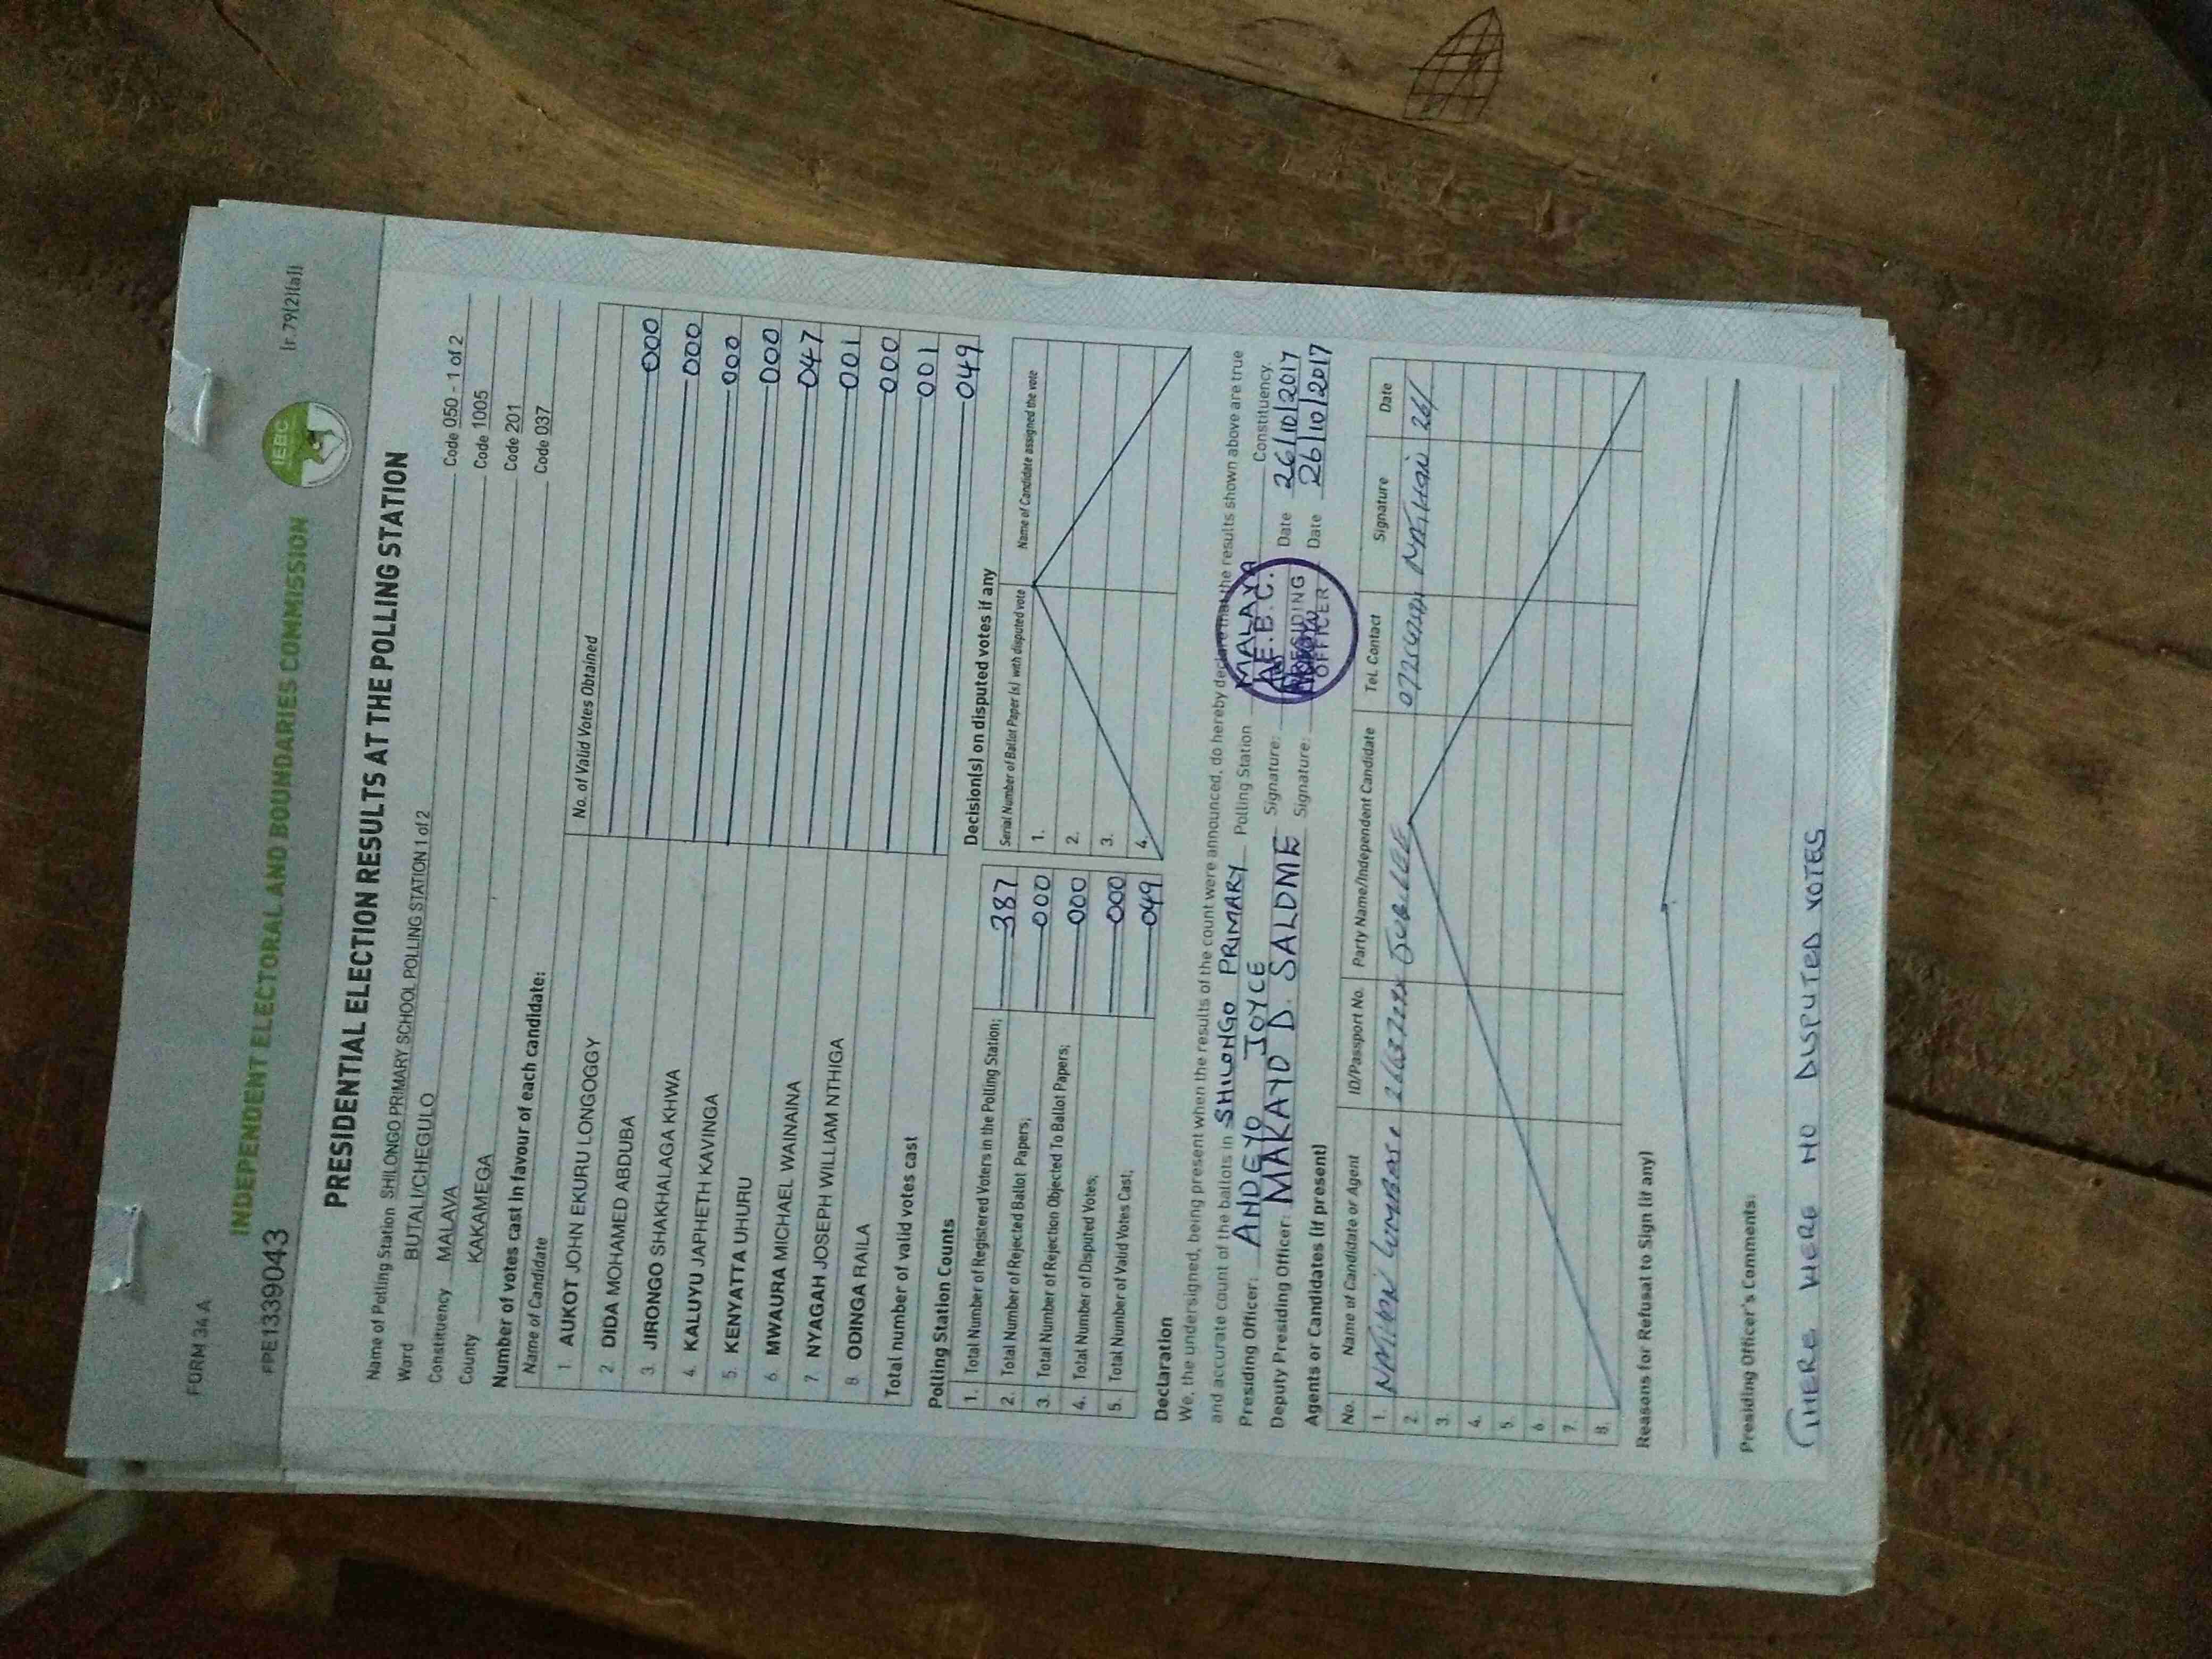 FORM 34 A
INDEPENDENT ELECTORAL AND BOUNDARIES COMMISSION
IEBC
FPE1339043
(r.79(2)(a))
PRESIDENTIAL ELECTION RESULTS AT THE POLLING STATION
Name of Polling Station SHILONGO PRIMARY SCHOOL POLLING STATION 1 of 2 Code 050 - 1 of 2
Ward BUTALI/CHEGULO Code 1005
Constituency MALAVA Code 201
County KAKAMEGA Code 037
Number of votes cast in favour of each candidate:
Name of Candidate No. of Valid Votes Obtained
1 AUKOT JOHN EKURU LONGOGGY 000
2 DIDA MOHAMED ABDUBA 000
3. JIRONGO SHAKHALAGA KHWA 000
4. KALUYU JAPHETH KAVINGA 000
5. KENYATTA UHURU 047
6 MWAURA MICHAEL WAINAINA 001
7. NYAGAH JOSEPH WILLIAM NTHIGA 000
8. ODINGA RAILA 001
Total number of valid votes cast 049
Polling Station Counts
1. Total Number of Registered Voters in the Polling Station; 387
2. Total Number of Rejected Ballot Papers; 000
3. Total Number of Rejection Objected To Ballot Papers; 000
4. Total Number of Disputed Votes; 000
5. Total Number of Valid Votes Cast; 049
Decision(s) on disputed votes if any
Serial Number of Ballot Paper (s) with disputed vote Name of Candidate assigned the vote
1.
2.
3.
4.
Declaration
We, the undersigned, being present when the results of the count were announced, do hereby declare that the results shown above are true
and accurate count of the ballots in SHILONGO PRIMARY Polling Station MALAVA Constituency.
Presiding Officer: ANDEYO JOYCE Signature: Date 26/10/2017
Deputy Presiding Officer: MAKAYO D. SALOME Signature: Date 26/10/2017
I.E.B.C.
PRESIDING
OFFICER
Agents or Candidates (if present)
No. Name of Candidate or Agent ID/Passport No. Party Name/Independent Candidate Tel. Contact Signature Date
1. Jubilee 26/
2.
3.
4.
5.
6
7.
8.
Reasons for Refusal to Sign (if any)
Presiding Officer's Comments:
THERE WERE NO DISPUTED VOTES